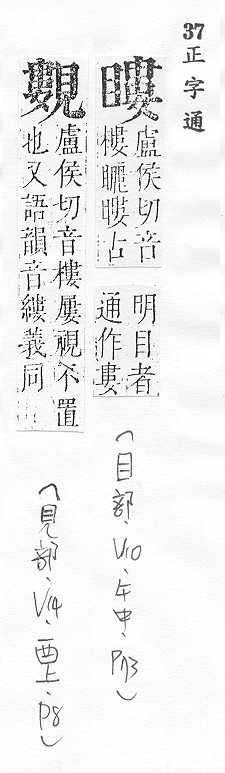 37正字通
瞜
盧侯切音
樓矖瞜占
明目者
通作婁
(目部、V10、午中、P73)
覯
盧侯切音樓屢視不置
也又語韻音縷義同
(見部、V14、酉上、P8)